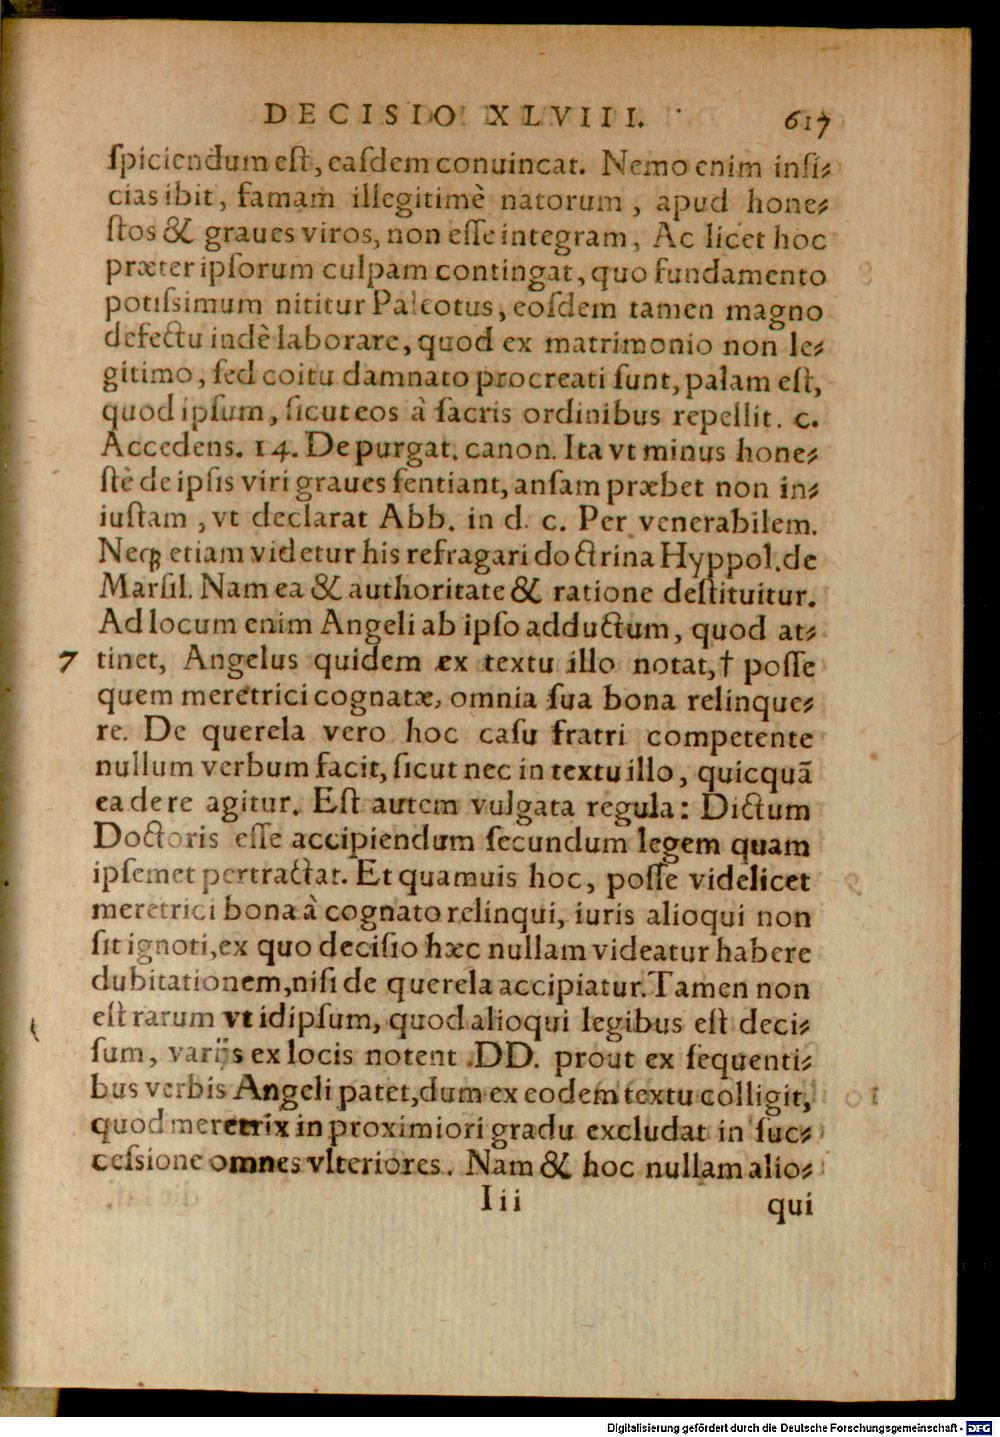 DECISIO XLVIII. 617
ſpiciendum eſt, eaſdem conuincat. Nemo enim infi⸗
cias ibit, famam illegitimè natorum, apud hone⸗
ſtos & graues viros, non eſſe integram, Ac licet hoc
præter ipſorum culpam contingat, quo fundamento
potiſsimum nititur Paleotus, eoſdem tamen magno
defectu indè laborare, quod ex matrimonio non le⸗
gitimo, ſed coitu damnato procreati ſunt, palam eſt,
quod ipſum, ſicut eos à ſacris ordinibus repellit. c.
Accedens. 14. De purgat. canon. Ita vt minus hone⸗
ſtè de ipſis viri graues ſentiant, anſam præbet non in⸗
iuſtam, vt declarat Abb. in d. c. Per venerabilem.
Neqꝫ etiam videtur his refragari doctrina Hyppol. de
Marſil. Nam ea & authoritate & ratione deſtituitur.
Ad locum enim Angeli ab ipſo adductum, quod at⸗
7 tinet, Angelus quidem ex textu illo notat, † poſſe
quem meretrici cognatæ, omnia ſua bona relinque⸗
re. De querela vero hoc caſu fratri competente
nullum verbum facit, ſicut nec in textu illo, quicquā
ea de re agitur. Eſt autem vulgata regula: Dictum
Doctoris eſſe accipiendum ſecundum legem quam
ipſemet pertractat. Et quamuis hoc, poſſe videlicet
meretrici bona à cognato relinqui, iuris alioqui non
ſit ignoti, ex quo deciſio hæc nullam videatur habere
dubitationem, niſi de querela accipiatur. Tamen non
eſt rarum vt idipſum, quod alioqui legibus eſt deci⸗
ſum, varijs ex locis notent DD. prout ex ſequenti⸗
bus verbis Angeli patet, dum ex eodem textu colligit,
quod meretrix in proximiori gradu excludat in ſuc⸗
ceſsione omnes vlteriores. Nam & hoc nullam alio⸗
Iii qui
Digitalisierung gefördert durch die Deutsche Forschungsgemeinschaft - DFG